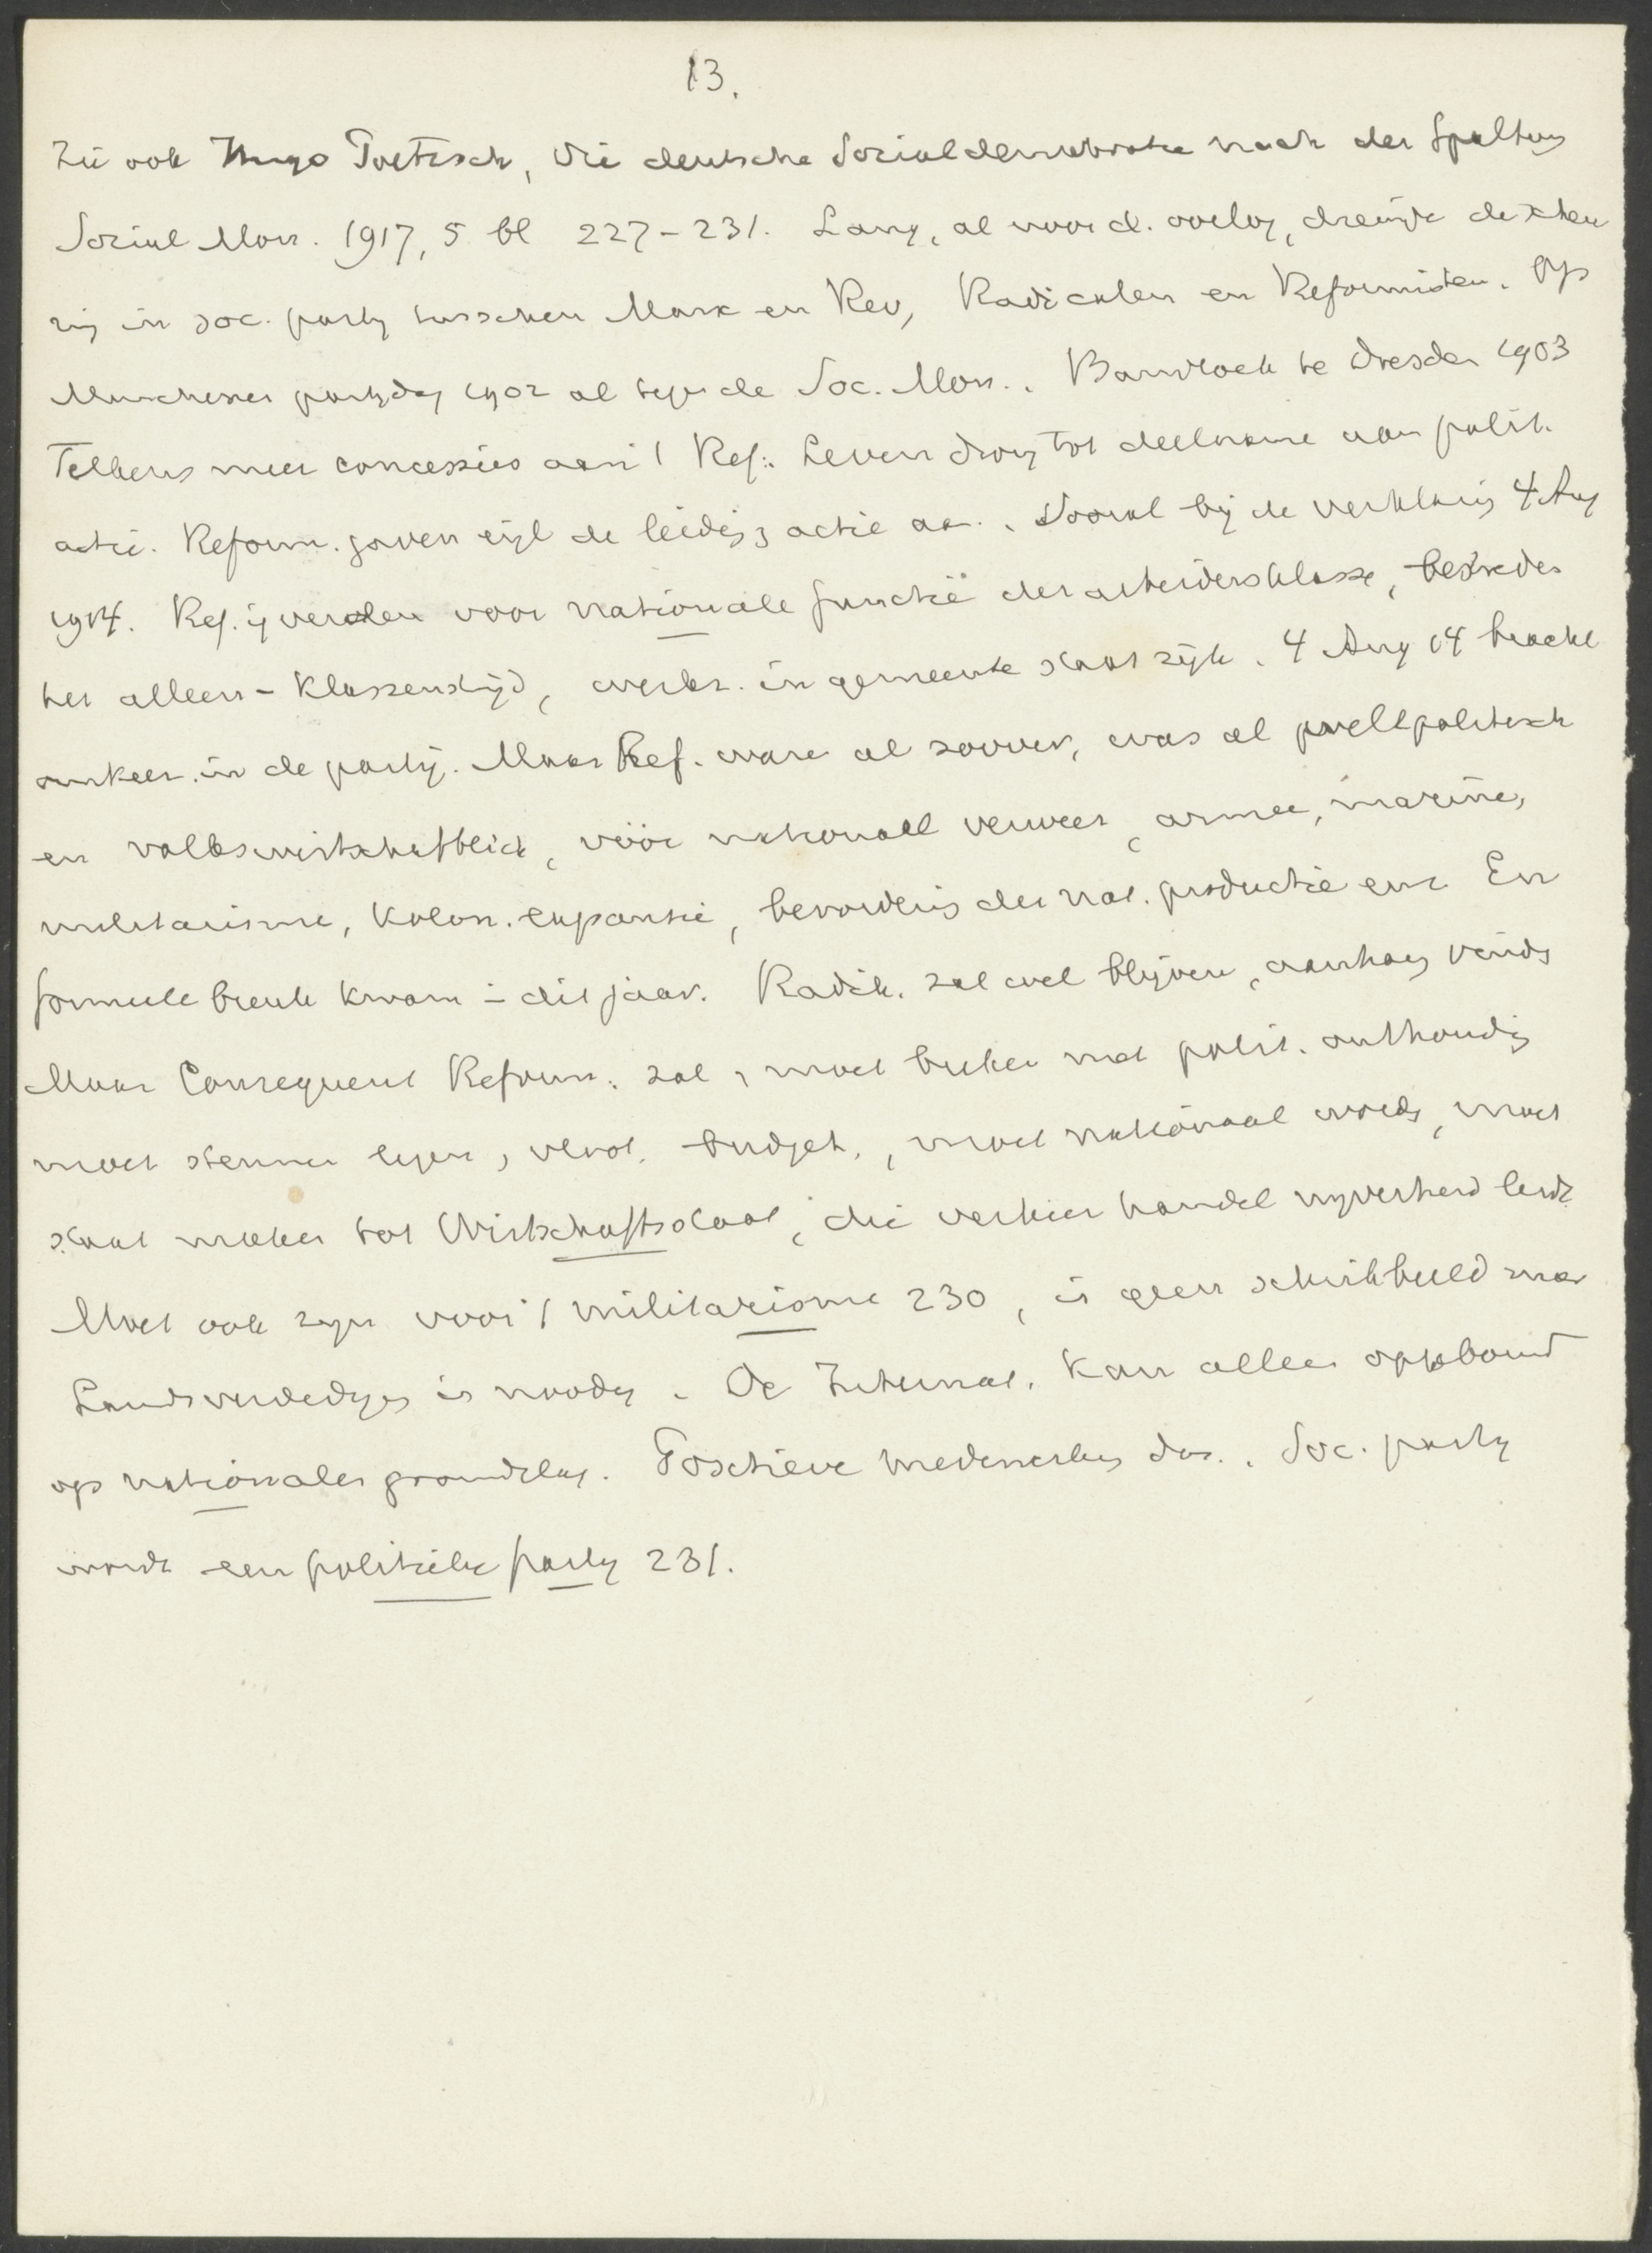 13.
Zie ook Hugo Poetzsch, Die deutsche Socialdemokratie nach der Spaltung
Social Mon. 1917, 5 bl 227-231. Lang, al voor d. oorlog, dreigde de scheu
ring in soc. party tusschen Marx en Rev, Radicalen en Reformisten. Op
Munchener partydag 1902 al tegen de Soc. Mon.. Banvloek te Dresden 1903
Telkens meer concessies aan 't Ref.. Leven drong tot deelname aan polit.
actie. Reform. gaven eigl de leiding, actie aan. Vooral bij de verklaring 4 Aug
1914. Ref. ijverden voor nationale functie der arbeidersklasse, bestreden
het alleen-Klassenstrijd, werkz. in gemeente staat rijk. 4 Aug 14 bracht
omkeer in de partij. Maar Ref. ware al zoover, was al weltpolitisch
en volkswirtschaftlich, vóór nationall verweer, armee, marine,
militarisme, Kolon. expansie, bevordering der nat. productie enz En
formeele breuk kwam in dit jaar. Radik. zal wel blijven, aanhang vinds
Maar Consequent Reform. zal, moet breken met polit. onthouding
moet stemmen legen, vloot, budget, moet nationaal worden, moet
staat maken tot Wirtschaftsstaat, die verkeer handel nyverheid leidt
Moet ook zyn voor 't militarisme 230, is geen schrikbeeld meer
Landsverdediging is noodig. De Internat. kan alleen opgebouwd
op nationalen grondslag. Positieve medewerking dus. Soc. party
wordt een politieke party 231.